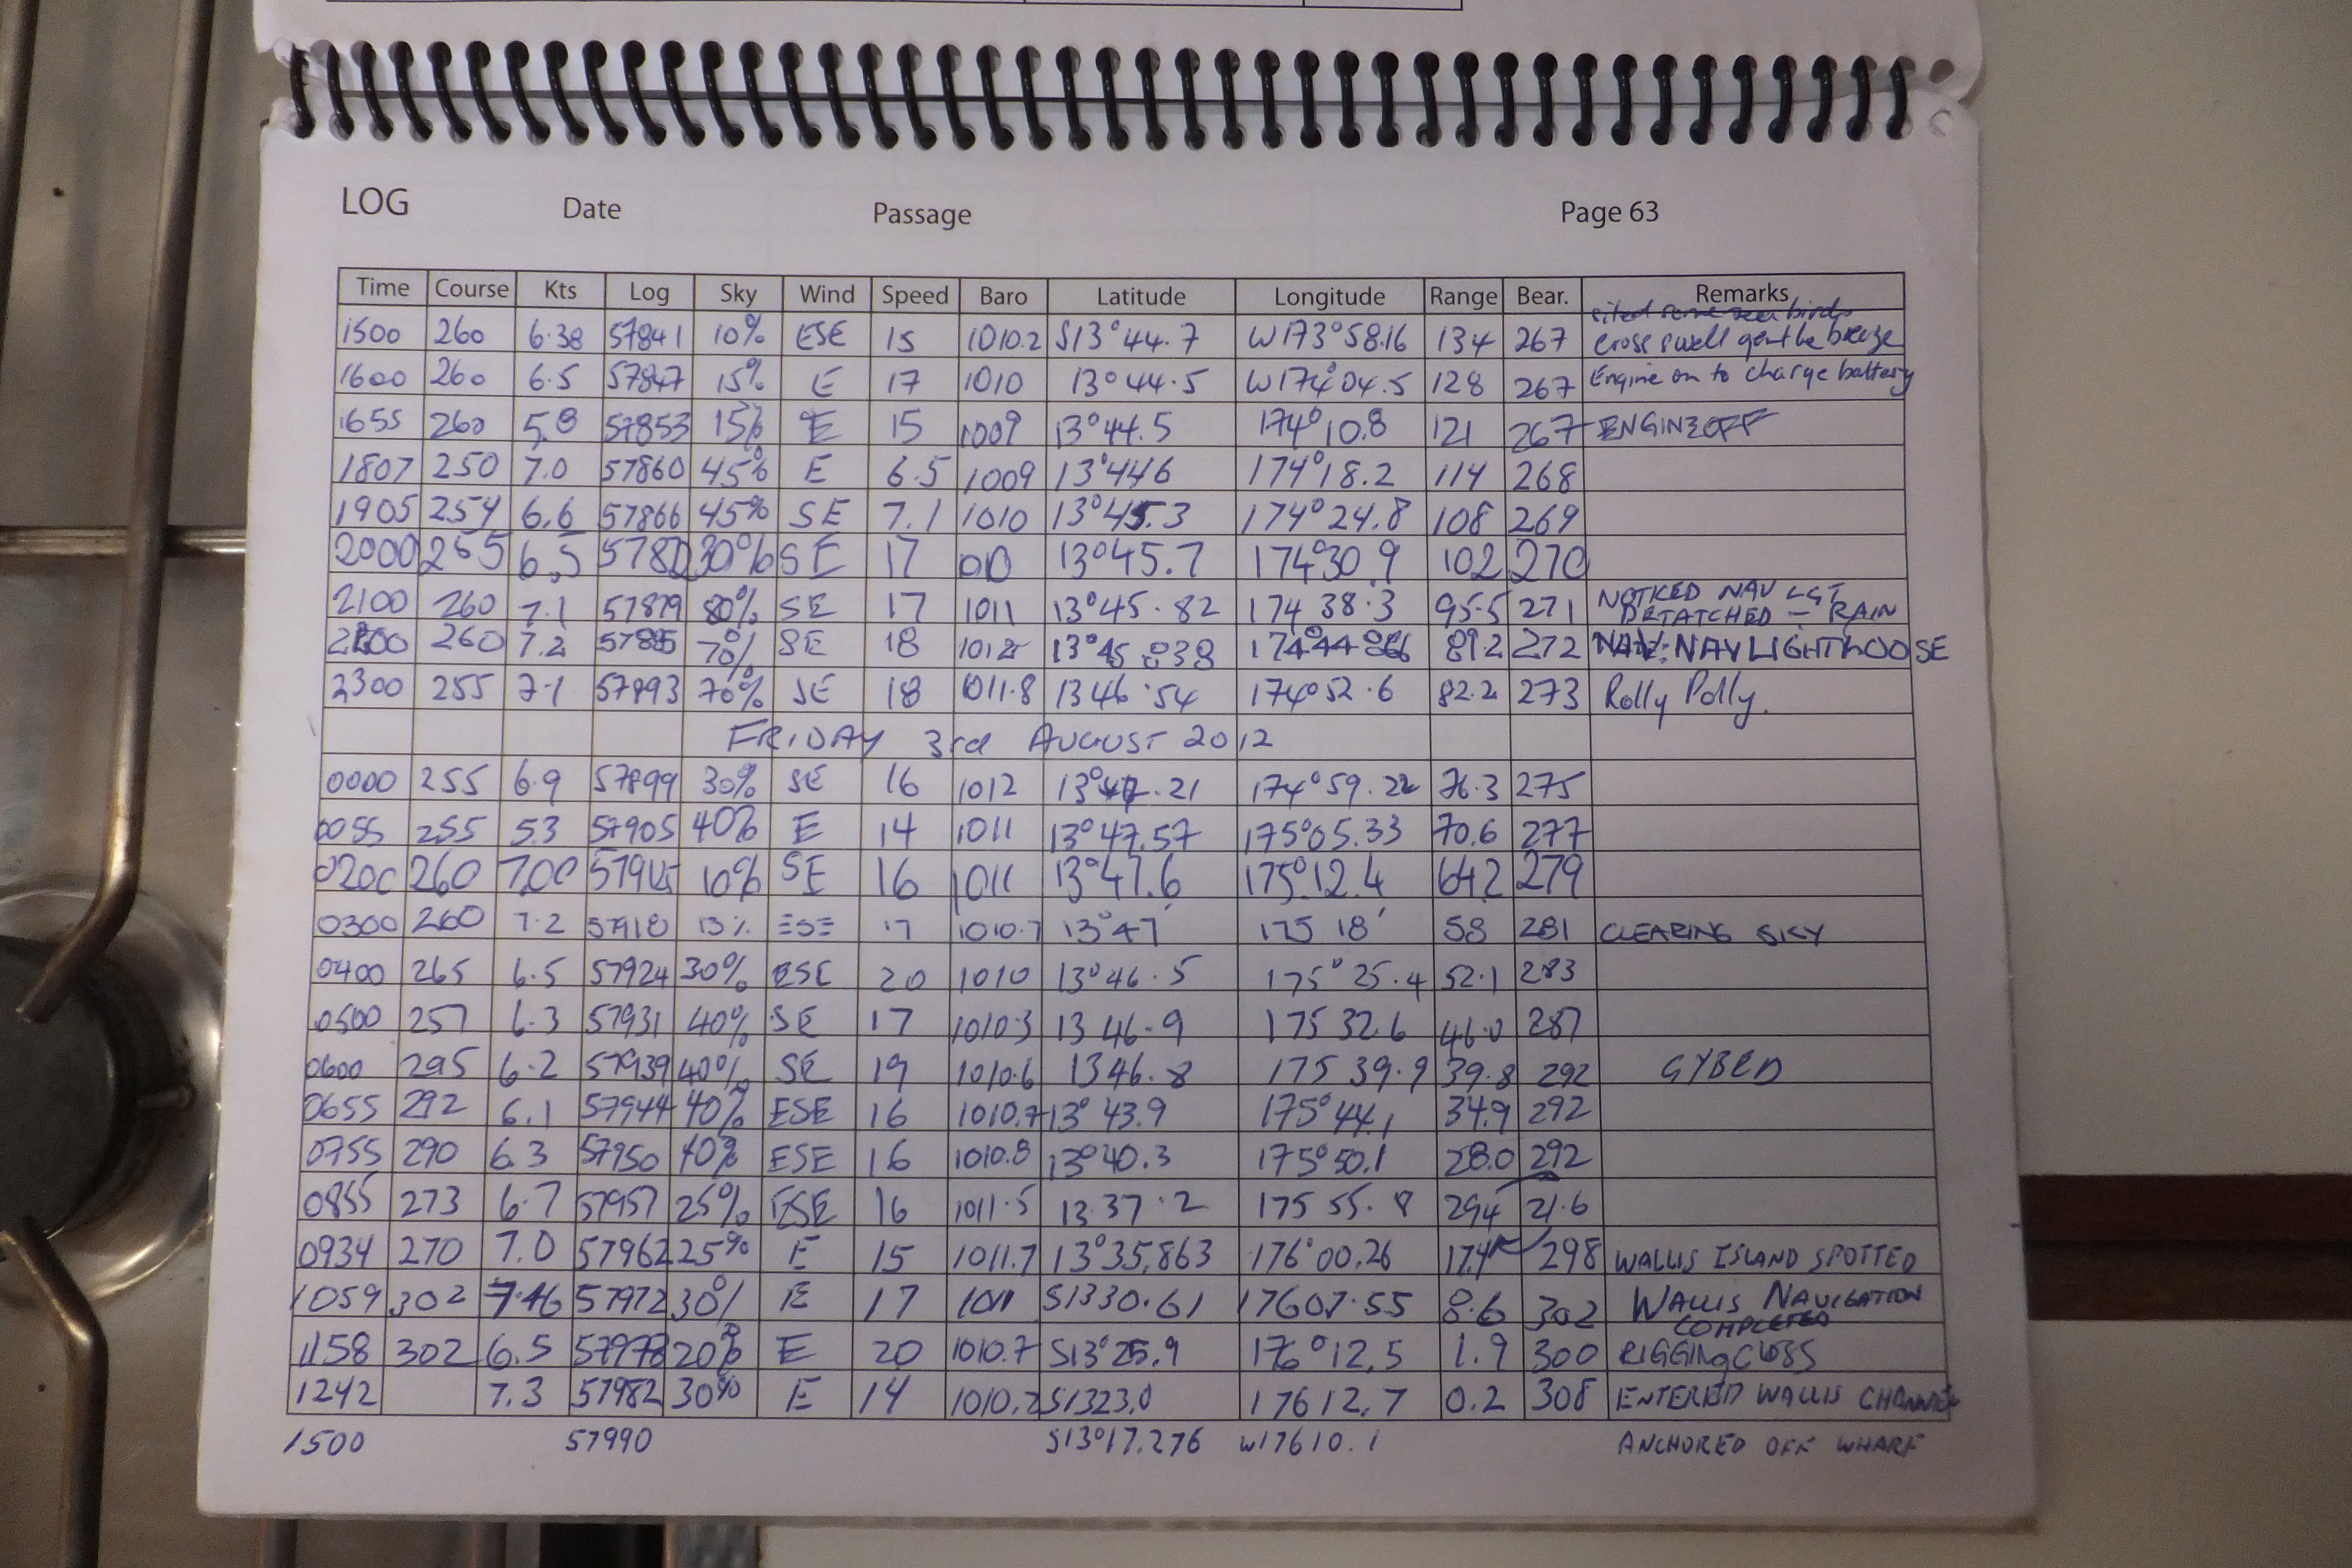 LOG Date Passage Page 63
Time Course Kts Log Sky Wind Speed Baro Latitude Longitude Range Bear. Remarks
sited some sea birds
1500 260 6.38 57841 10% ESE 15 1010.2 S13°44.7 W173°58.16 134 267 Cross swell gentle breeze
1600 260 6.5 57847 15% E 17 1010 13°44.5 W174°04.5 128 267 Engine on to charge battery
1655 260 5.8 57853 15% E 15 1009 13°44.5 174°10.8 121 267 ENGINE OFF
1807 250 7.0 57860 45% E 6.5 1009 13°446 174°18.2 114 268
1905 254 6.6 57866 45% SE 7.1 1010 13°45.3 174°24.8 108 269
2000 255 6.5 30% SE 17 13°45.7 174°30.9 102 270
2100 260 7.1 57879 80% SE 17 1011 13°45.82 174 38.3 95.5 271 NOTICED NAV LGT
DETATCHED - RAIN
2200 260 7.2 57885 70% SE 18 1012 13°45.838 174°44 89.2 272 NAV: NAV LIGHT LOOSE
2300 255 7.1 57893 70% SE 18 1011.8 13 46.54 174°52.6 82.2 273 Rolly Polly.
FRIDAY 3rd AUGUST 2012
0000 255 6.9 57899 30% SE 16 1012 13°47.21 174°59.22 76.3 275
0055 255 5.3 57905 40% E 14 1011 13°47.57 175°05.33 70.6 277
0200 260 7.00 10% SE 16 1011 13°47.6 175°12.4 642 279
0300 260 7.2 57918 15% ESE 17 1010.7 13°47' 175 18' 58 281 CLEARING SKY
0400 265 6.5 57924 30% ESE 20 1010 13°46.5 175°25.4 52.1 283
0500 257 6.3 57931 40% SE 17 1010.3 13 46.9 175 32.6 46.0 287
0600 295 6.2 57939 40% SE 19 1010.6 13 46.8 175 39.9 39.8 292 GYBED
0655 292 6.1 57944 40% ESE 16 1010.7 13°43.9 175°44.1 34.9 292
0755 290 6.3 57950 40% ESE 16 1010.8 13°40.3 175°50.1 28.0 292
0855 273 6.7 57957 25% ESE 16 1011.5 13 37.2 175 55.8 294 21.6
0934 270 7.0 57962 25% E 15 1011.7 13°35.863 176°00.26 17.4 298 WALLIS ISLAND SPOTTED
1059 302 7.46 57972 30% E 17 1011 S1330.61 17607.55 8.6 302 WALLIS NAVIGATION
COMPLETED
1158 302 6.5 57978 20% E 20 1010.7 S13°25.9 176°12.5 1.9 300 RIGGING
1242 7.3 57982 30% E 14 1010.2 S1323.0 17612.7 0.2 308 ENTERED WALLIS CHANNEL
1500 57990 S13°17.276 W17610.1 ANCHORED OFF WHARF